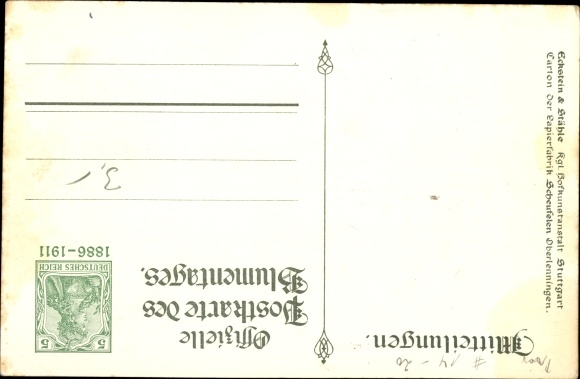 Offizielle
Postkarte des
Blumentages.
5
DEUTSCHES REICH
1886-1911
Mitteilungen.
3,
# 14-20
Eckstein & Stähle Kgl. Hofkunstanstalt Stuttgart
Carton der Papierfabrik Scheufelen Oberlenningen.